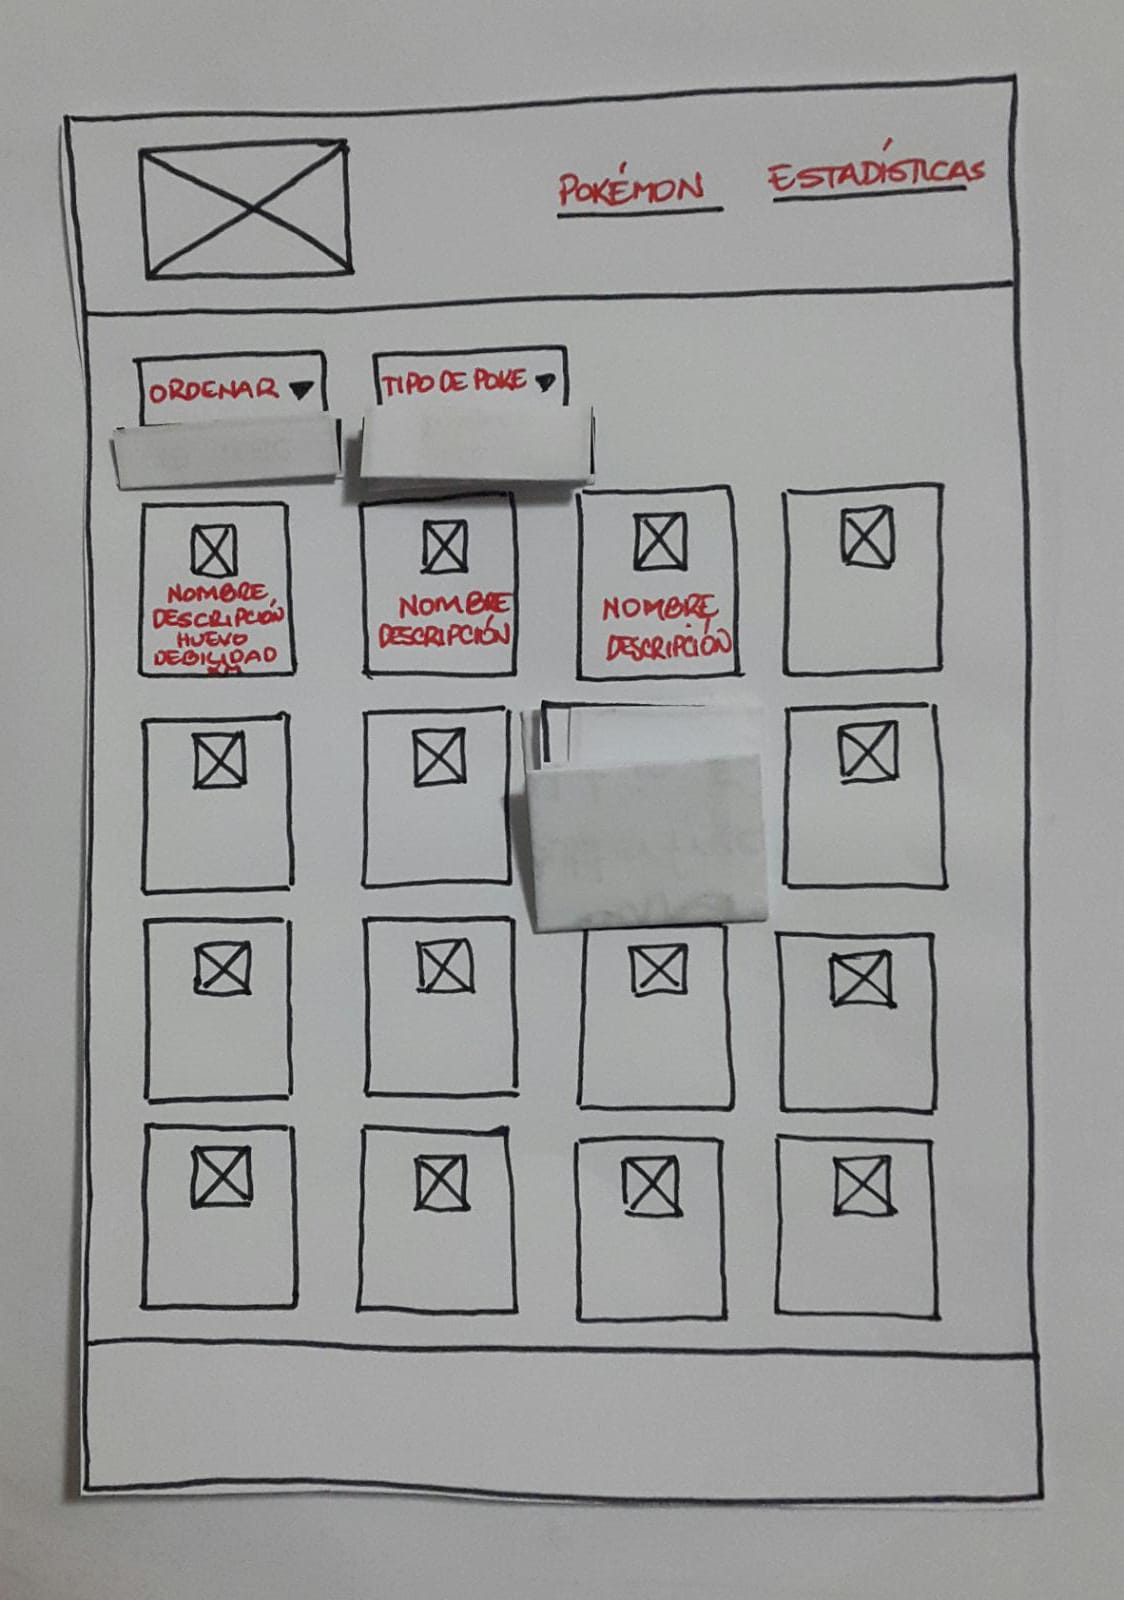 POKÉMON ESTADÍSTICAS
ORDENAR TIPO DE POKE
NOMBRE
DESCRIPCIÓN
HUEVO
DEBILIDAD
NOMBRE
DESCRIPCIÓN
NOMBRE
DESCRIPCIÓN